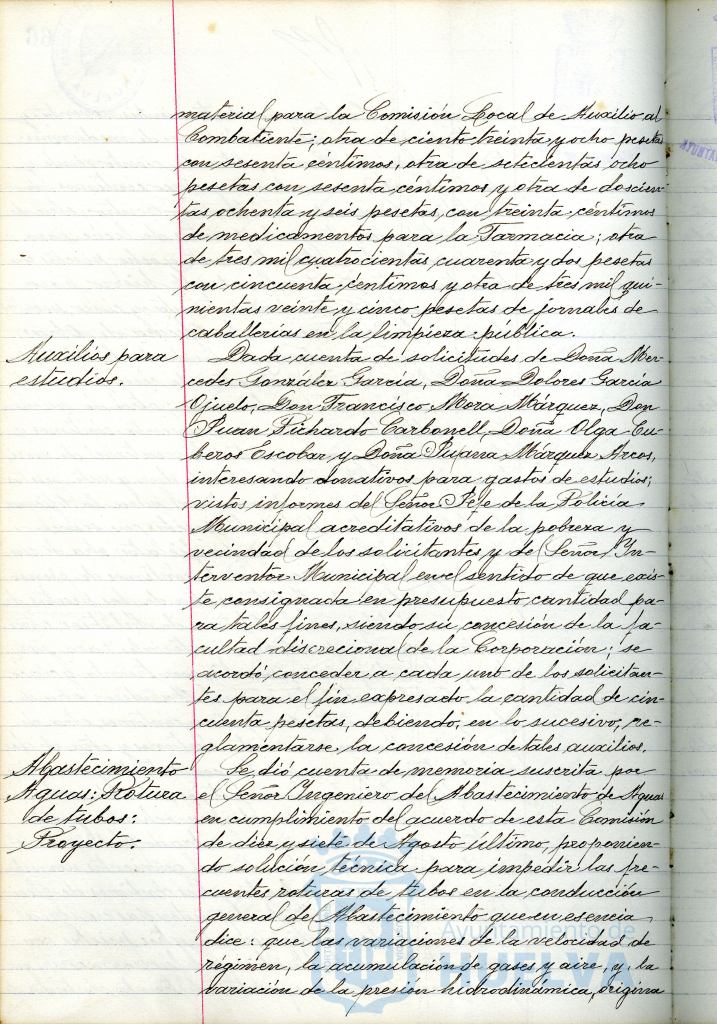 material para la Comisión Local de Auxilio al
Combatiente; otra de ciento treinta y ocho pesetas
con sesenta céntimos, otra de setecientas ocho
pesetas con sesenta céntimos y otra de doscien-
tas ochenta y seis pesetas con treinta céntimos
de medicamentos para la Farmacia; otra
de tres mil cuatrocientas cuarenta y dos pesetas
con cincuenta céntimos y otra de tres mil qui-
nientas veinte y cinco pesetas de jornales de
caballerías en la limpieza pública.
Auxilios para
estudios.
Dada cuenta de solicitudes de Doña Mer-
cedes González García, Doña Dolores García
Ojuelo, Don Francisco Mora Márquez, Don
Juan Pichardo Carbonell, Doña Olga Cu-
beros Escobar y Doña Juana Márquez Arcos,
interesando donativos para gastos de estudios;
vistos informes del Señor Jefe de la Policía
Municipal acreditativos de la pobreza y
vecindad de los solicitantes y del Señor In-
terventor Municipal en el sentido de que exis-
te consignada en presupuesto cantidad pa-
ra tales fines, siendo su concesión de la fa-
cultad discrecional de la Corporación; se
acordó conceder a cada uno de los solicitan-
tes para el fin expresado la cantidad de cin-
cuenta pesetas, debiendo, en lo sucesivo, re-
glamentarse la concesión de tales auxilios.
Abastecimiento
Aguas: Rotura
de tubos:
Proyecto.
Se dió cuenta de memoria suscrita por
el Señor Ingeniero del Abastecimiento de Aguas
en cumplimiento del acuerdo de esta Comisión
de diez y siete de Agosto último, proponien-
do solución técnica para impedir las fre-
cuentes roturas de tubos en la conducción
general del Abastecimiento que en esencia
dice: que las variaciones de la velocidad de
régimen, la acumulación de gases y aire, y la
variación de la presión hidrodinámica, origina
Ayuntamiento de
HUELVA